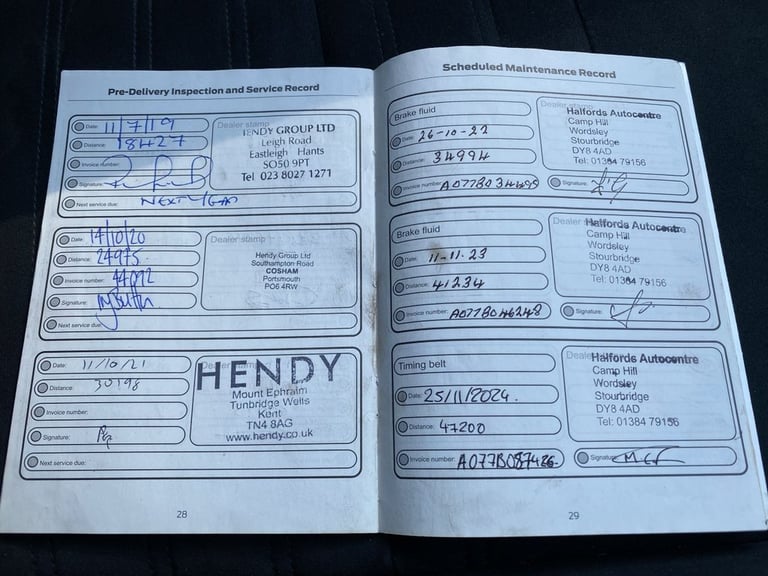 Pre-Delivery Inspection and Service Record
Date: 11/7/19
Distance: 18427
Invoice number:
Signature:
Next service due: NEXT YEAR
Dealer stamp
HENDY GROUP LTD
Leigh Road
Eastleigh Hants
SO50 9PT
Tel 023 8027 1271
Date: 14/10/20
Distance: 24975
Invoice number: 44092
Signature:
Next service due:
Dealer stamp
Hendy Group Ltd
Southampton Road
COSHAM
Portsmouth
PO6 4RW
Date: 11/10/21
Distance: 30198
Invoice number:
Signature:
Next service due:
HENDY
Mount Ephraim
Tunbridge Wells
Kent
TN4 8AG
www.hendy.co.uk
28
Scheduled Maintenance Record
Brake fluid
Date: 26-10-22
Distance: 34994
Invoice number:
Dealer stamp
Halfords Autocentre
Camp Hill
Wordsley
Stourbridge
DY8 4AD
Tel: 01384 79156
Signature:
Brake fluid
Date: 11-11-23
Distance: 41234
Invoice number: A077B046248
Dealer
Halfords Autocentre
Camp Hill
Wordsley
Stourbridge
DY8 4AD
Tel: 01384 79156
Signature:
Timing belt
Date: 25/11/2024.
Distance: 47200
Invoice number: A077B087426.
Halfords Autocentre
Camp Hill
Wordsley
Stourbridge
DY8 4AD
Tel: 01384 79156
Signature:
29